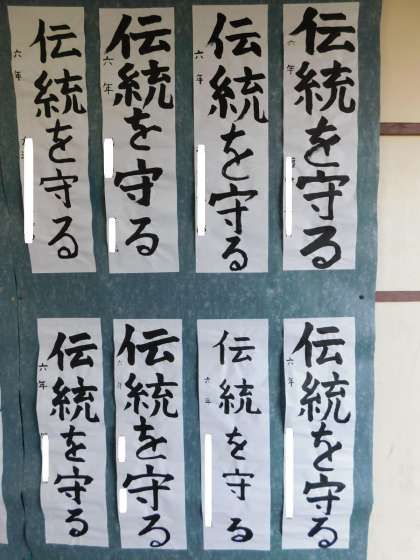 伝統を守る
六年
伝統を守る
六年
伝統を守る
六年
伝統を守る
六年
伝統を守る
六年
伝統を守る
六年
伝統を守る
六年
伝統を守る
六年